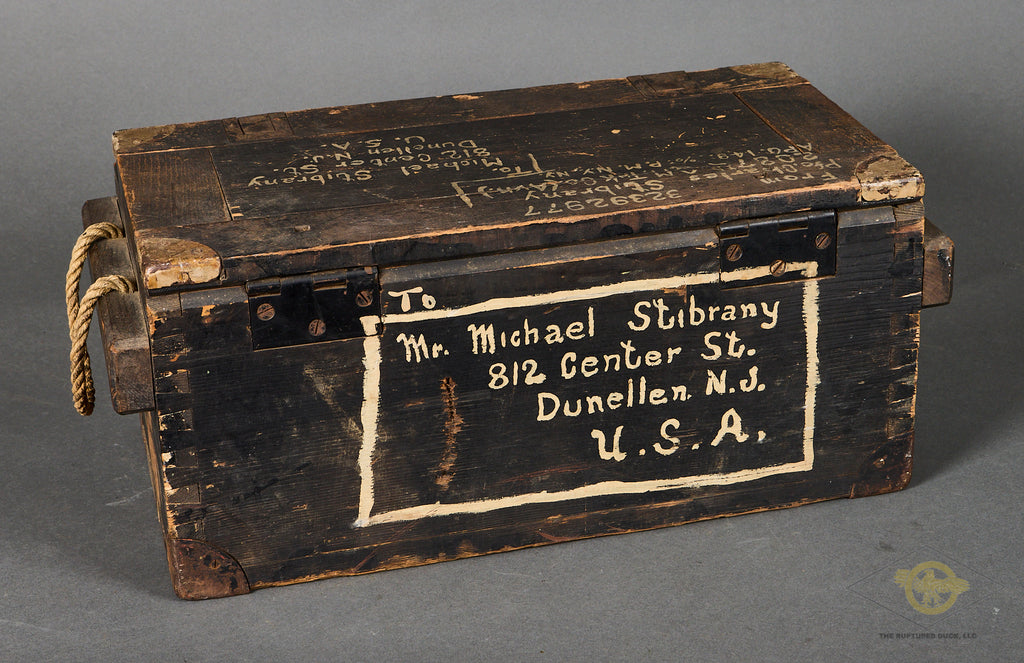 To
Mr. Michael Stibrany
812 Center St.
Dunellen, N.J.
U. S. A.
From
32392977
Stibrany
To.
Michael Stibrany
812 Center St.
Dunellen N.J.
U. S. A.
THE RUPTURED DUCK, LLC